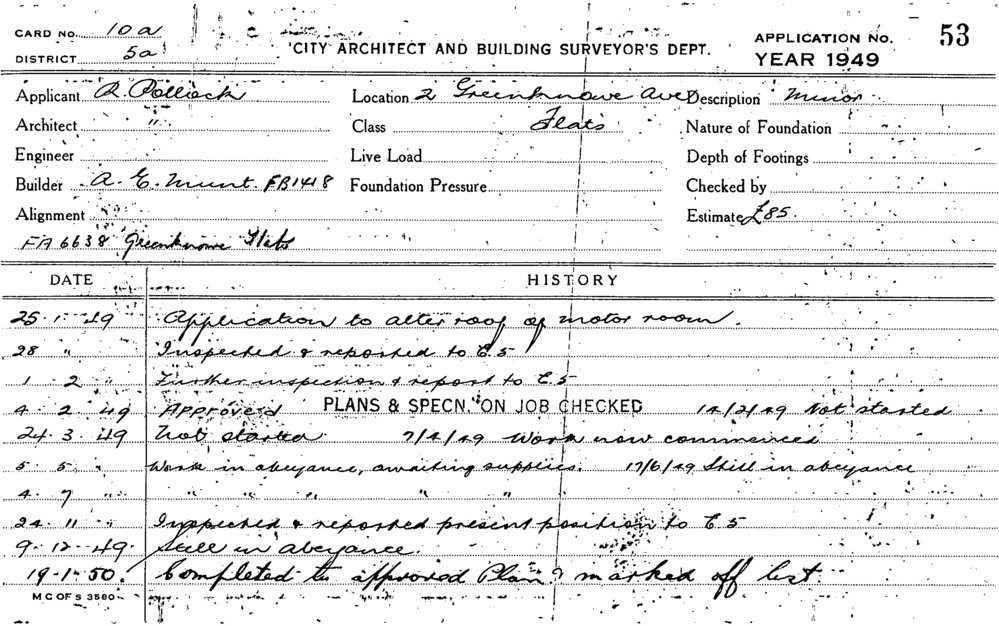 CARD No. 10a
DISTRICT 5a
CITY ARCHITECT AND BUILDING SURVEYOR'S DEPT.
APPLICATION No. 53
YEAR 1949
Applicant R. Pollack Location 2 Greenknowe Ave Description Minor
Architect " Class Flats Nature of Foundation
Engineer Live Load Depth of Footings
Builder A. E. Munt. FB1418 Foundation Pressure Checked by
Alignment Estimate £85.
FA 6638 Greenknowe Flats
DATE HISTORY
25.1.49 Application to alter roof of motor room.
28 " Inspected & reported to E.5
1 2 " Further inspection & report to E.5
4. 2. 49 Approved PLANS & SPECN. ON JOB CHECKED 14/2/49 Not started
24.3.49 Not started. 7/4/49 Work now commenced
5 5 " Work in abeyance, awaiting supplies. 17/6/49 Still in abeyance
4. 7 " " " " "
24. 11 " Inspected & reported present position to E.5
9.12.49. Still in abeyance.
19.1.50. Completed to approved Plan & marked off list
M C OF S 3580